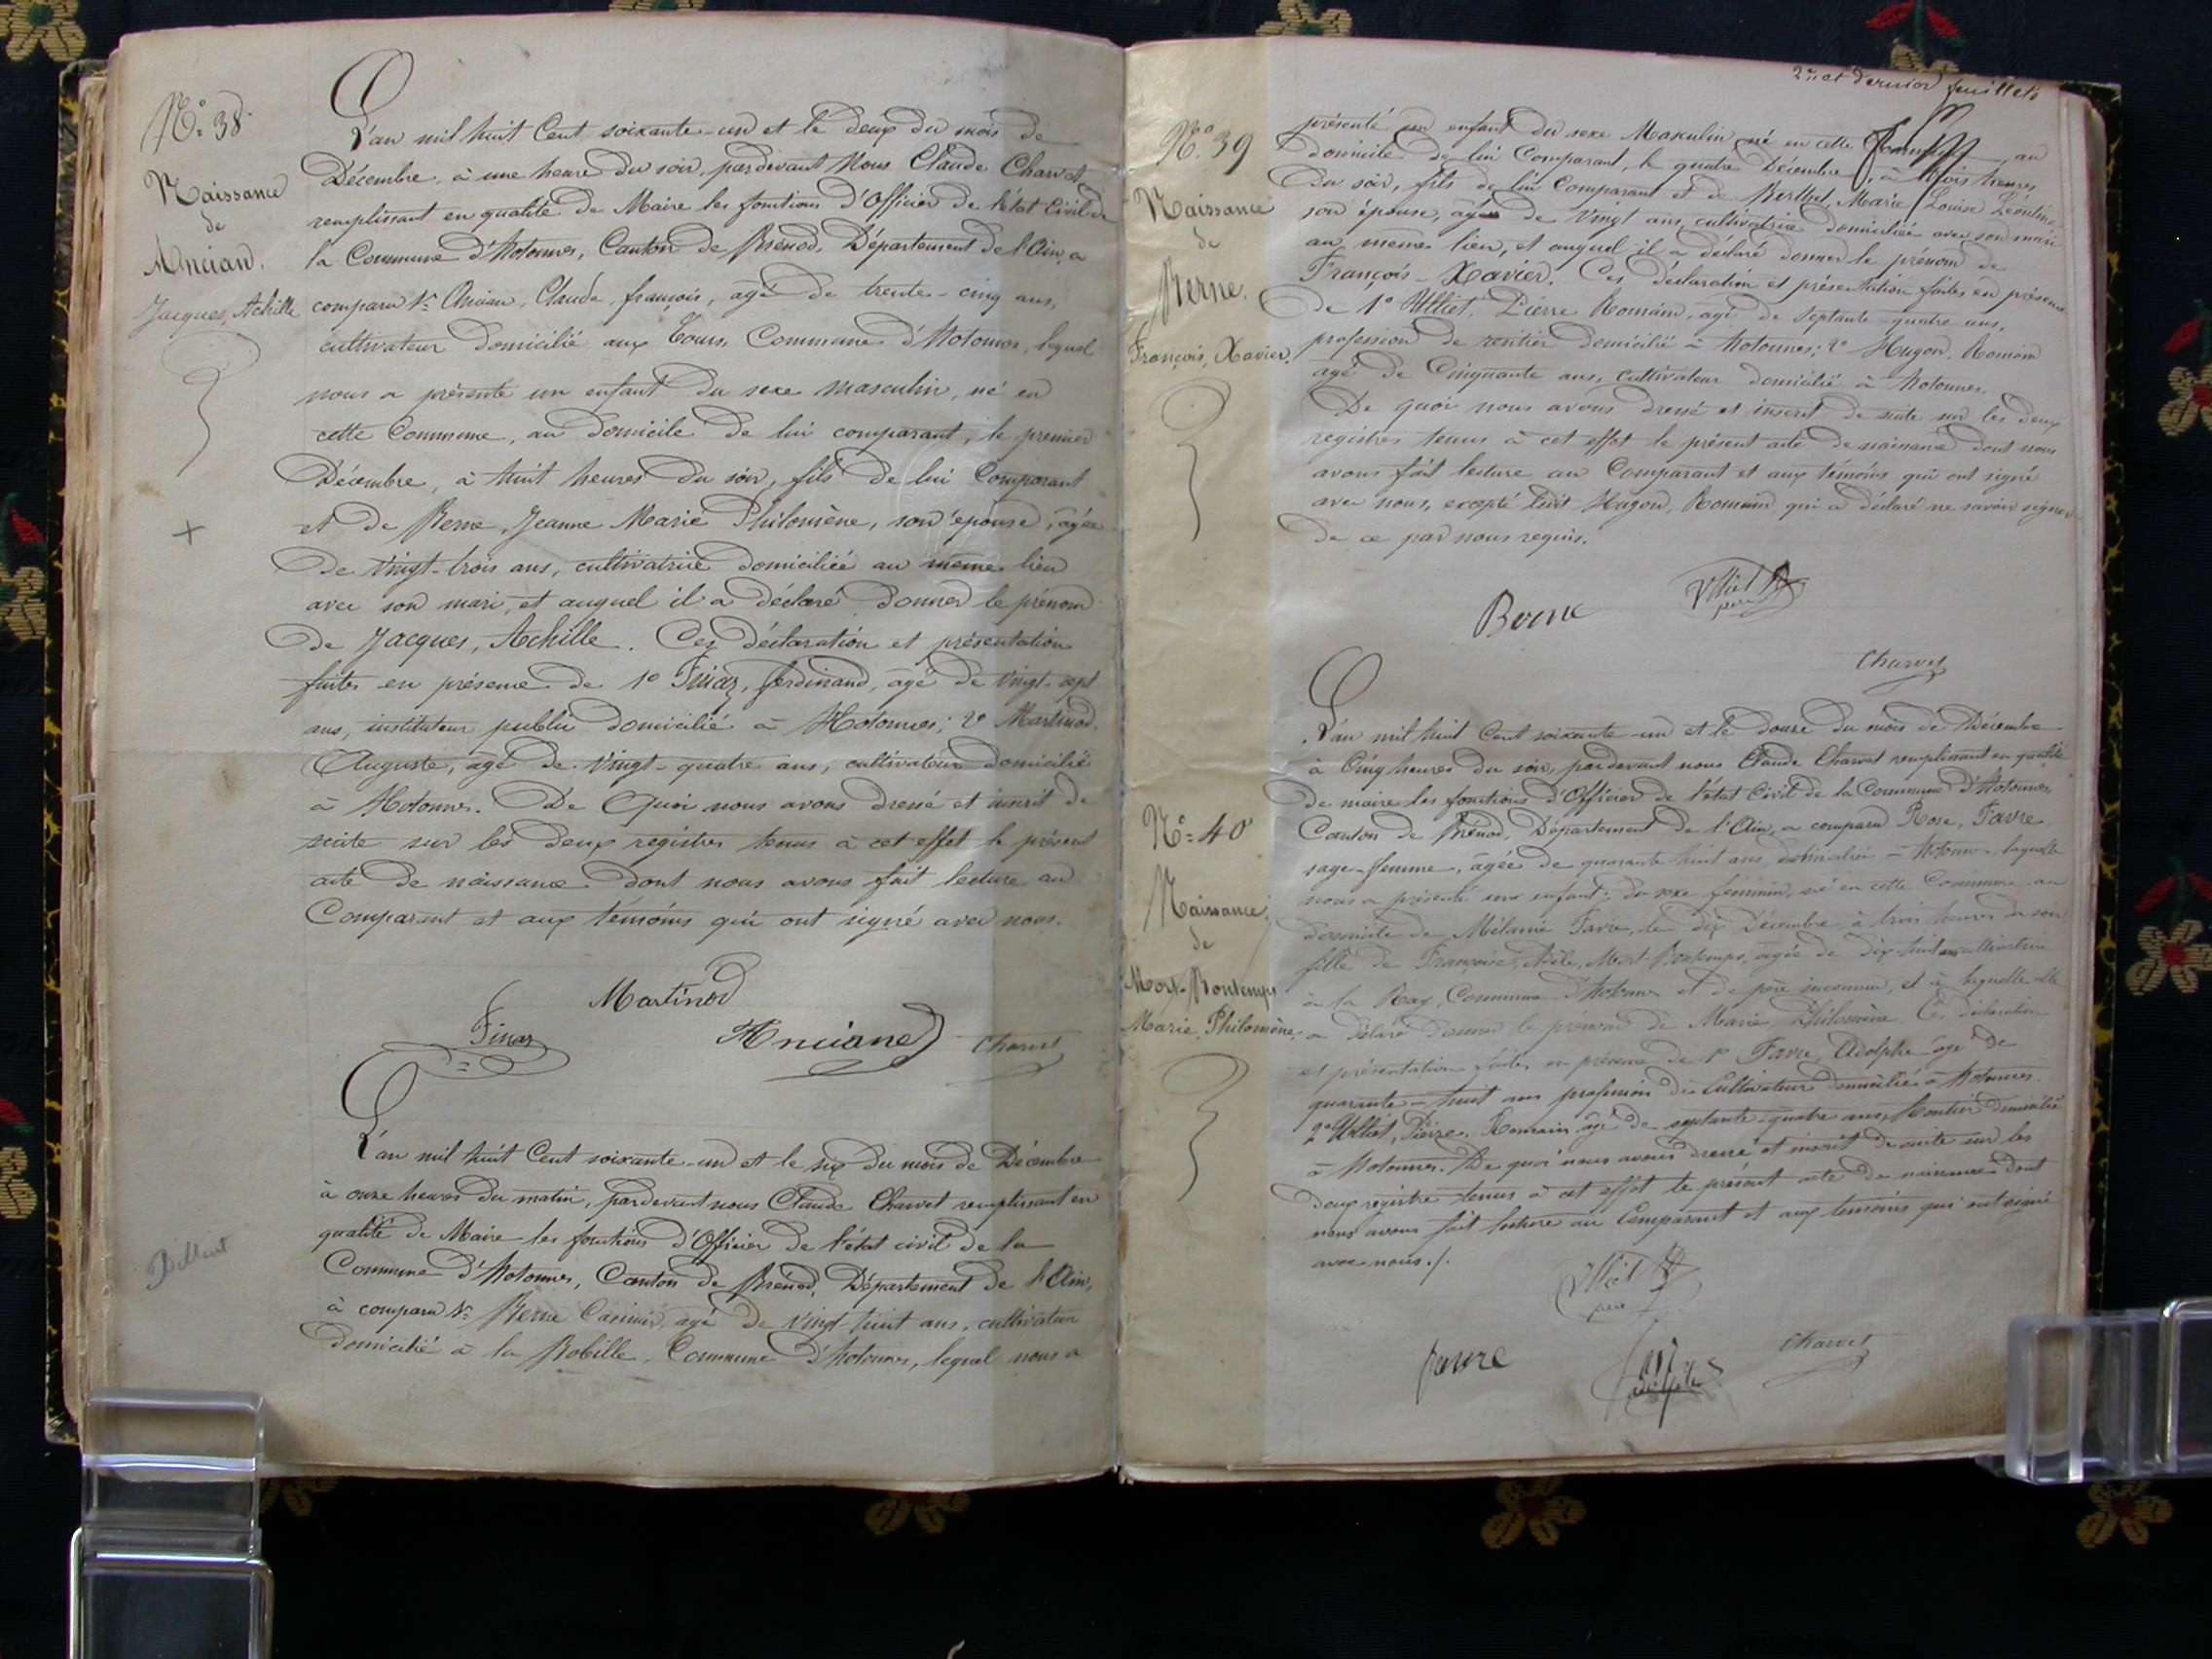 N° 38.
Naissance
de
Ancian.
Jacques, Achille
L'an mil huit Cent soixante-un et le deux du mois de
Décembre, à une heure du soir, pardevant Nous Claude Charvet
remplissant en qualité de Maire les fonctions d'Officier de l'état Civil de
la Commune d'Hotonnes, Canton de Brénod, Département de l'Ain, a
comparu Sr. Ancian, Claude, françois, agé de trente-cinq ans,
cultivateur domicilié aux Cours, Commune d'Hotonnes, lequel
nous a présenté un enfant du sexe masculin, né en
cette Commune, au domicile de lui comparant, le premier
Décembre, à huit heures du soir, fils de lui Comparant
et de Berne, Jeanne Marie Philomène, son épouse, âgée
de vingt-trois ans, cultivatrice domiciliée au même lieu
avec son mari, et auquel il a déclaré donner le prénom
de Jacques, Achille. Ces déclaration et présentation
faites en présence de 1° Finaz, ferdinand, agé de vingt-sept
ans, instituteur public domicilié à Hotonnes; 2° Martinod,
Auguste, agé de vingt-quatre ans, cultivateur domicilié
à Hotonnes. De Quoi nous avons dressé et inscrit de
suite sur les deux registres tenus à cet effet le présent
acte de naissance dont nous avons fait lecture au
Comparant et aux témoins qui ont signé avec nous.
Martinod
Finaz
Anciand
Charvet
L'an mil huit Cent soixante-un et le six du mois de Décembre
à onze heures du matin, pardevant nous Claude Charvet remplissant en
qualité de Maire les fonctions d'Officier de l'état civil de la
Commune d'Hotonnes, Canton de Brénod, Département de l'Ain,
à comparu Sr. Berne Casimir, agé de vingt-huit ans, cultivateur
domicilié à la Bobille, Commune d'Hotonnes, lequel nous a
2me et dernier feuillets
N° 39
Naissance
de
Berne.
François, Xavier.
présenté un enfant du sexe Masculin né en cette Commune, au
domicile de lui Comparant, le quatre Décembre, à trois heures
du soir, fils de lui Comparant et de Berthet, Marie Louise Léontine
son épouse, âgée de vingt ans, cultivatrice domiciliée avec son mari
au même lieu, et auquel il a déclaré donner le prénom de
François-Xavier. Ces déclaration et présentation faites en présence
de 1° Ulliet, Pierre Romain, agé de septante-quatre ans,
profession de rentier domicilié à Hotonnes; 2° Hugon, Romain
agé de Cinquante ans, cultivateur domicilié à Hotonnes.
De quoi nous avons dressé et inscrit de suite sur les deux
registres tenus à cet effet le présent acte de naissance dont nous
avons fait lecture au Comparant et aux témoins qui ont signé
avec nous, excepté ledit Hugon, Romain qui a déclaré ne savoir signer
de ce par nous requis.
Berne
Ulliet
père
Charvet
N° 40
Naissance
de
Mort-Bontemps
Marie, Philomène,
L'an mil huit Cent soixante-un et le douze du mois de Décembre
à Cinq heures du soir, pardevant nous Claude Charvet remplissant en qualité
de maire les fonctions d'Officier de l'état Civil de la Commune d'Hotonnes,
Canton de Brénod, Département de l'Ain, a comparu Rose, Favre
sage-femme, âgée de quarante huit ans, domiciliée à Hotonnes, laquelle
nous a présenté un enfant du sexe féminin, né en cette Commune au
domicile de Mélanie Favre, le dix Décembre à trois heures du soir
fille de Françoise, Adèle, Mort Bontemps, agée de dix-huit ans cultivatrice
à la Ray, Commune d'Hotonnes et de père inconnu, et à laquelle elle
a déclaré donner le prénom de Marie, Philomène. Ces déclaration
et présentation faites en présence de 1° Favre, Adolphe agé de
quarante-huit ans profession de Cultivateur domicilié à Hotonnes.
2° Ulliet, Pierre, Romain agé de septante-quatre ans, Rentier domicilié
à Hotonnes. De quoi nous avons dressé et inscrit de suite sur les
deux registre tenus à cet effet le présent acte de naissance dont
nous avons fait lecture au Comparant et aux temoins qui ont signé
avec nous./.
Ulliet
père
favre
adolphe
Charvet